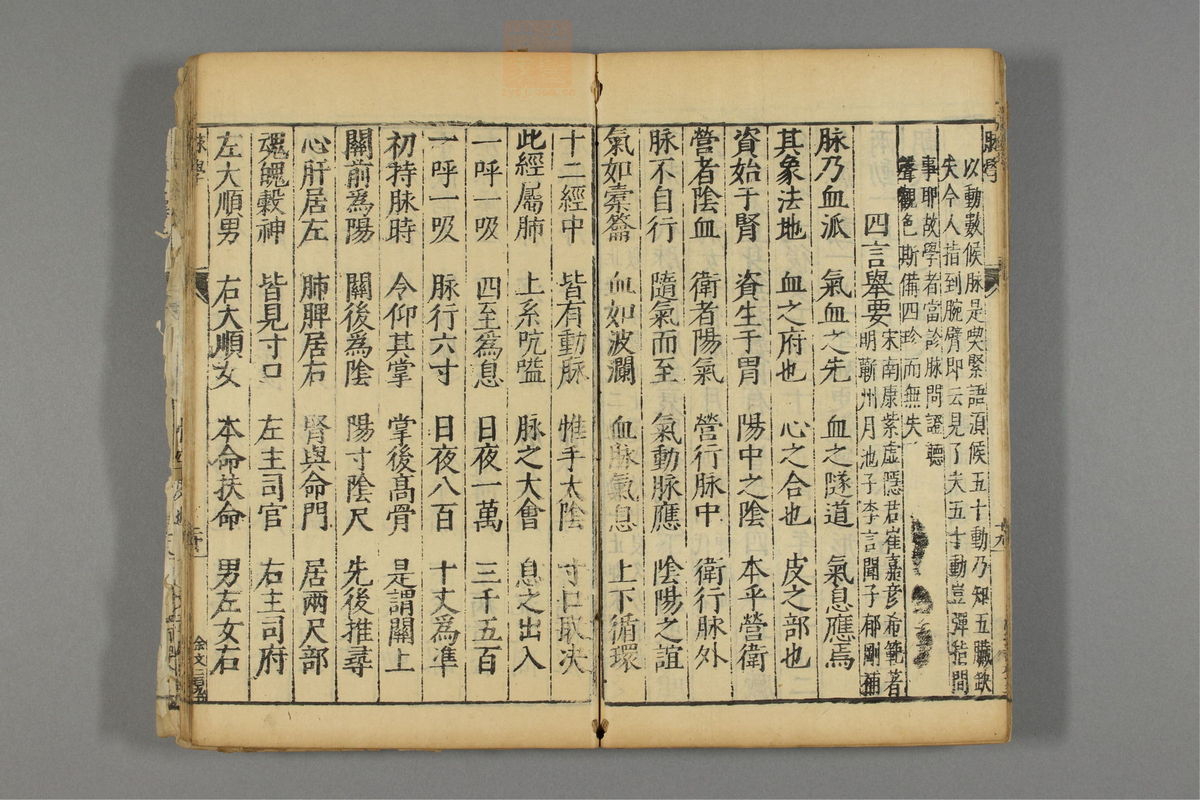 脉學
以動數候脉是喫緊語湏候五十動乃知五臟缺
失今人指到腕臂即云見了夫五十動豈彈指間
事耶故學者當診脉問證聽
聲觀色斯備四珍而無失
四言舉要
宋南康紫虛隱君崔嘉彦希範著
明蘄州月池子李言聞子郁刪補
脉乃血派 氣血之先 血之隧道 氣息應焉
其象法地 血之府也 心之合也 皮之部也
資始于腎 資生于胃 陽中之陰 本乎營衛
營者陰血 衛者陽氣 營行脉中 衛行脉外
脉不自行 隨氣而至 氣動脉應 陰陽之誼
氣如橐籥 血如波瀾 血脉氣息 上下循環
十二經中 皆有動脉 惟手太陰 寸口取决
此經屬肺 上系吭嗌 脉之大會 息之出入
一呼一吸 四至爲息 日夜一萬 三千五百
一呼一吸 脉行六寸 日夜八百 十丈爲凖
初持脉時 令仰其掌 掌後髙骨 是謂關上
關前爲陽 關後爲陰 陽寸陰尺 先後推尋
心肝居左 肺脾居右 腎與命門 居兩尺部
魂魄糓神 皆見寸口 左主司官 右主司府
左大順男 右大順女 本命扶命 男左女右
脉學
二十